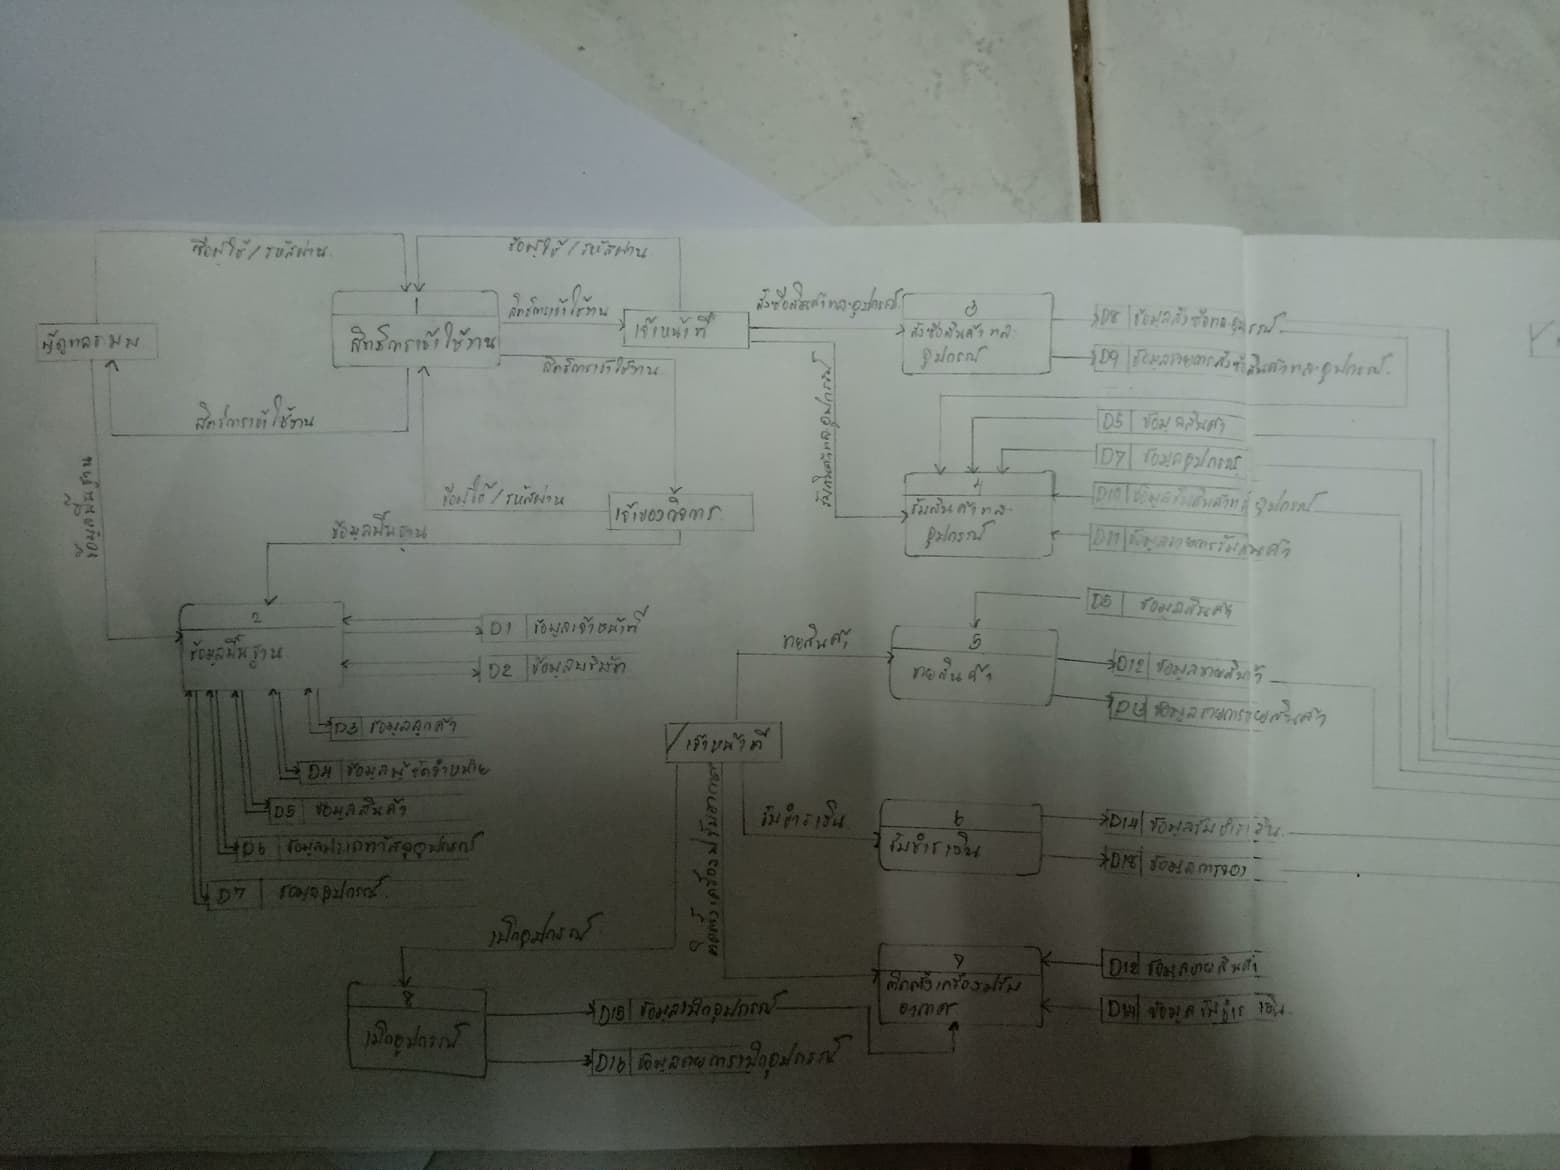 ชื่อผู้ใช้ / รหัสผ่าน
ชื่อผู้ใช้ / รหัสผ่าน
1
สิทธิ์การเข้าใช้งาน
สิทธิ์การเข้าใช้งาน
เจ้าหน้าที่
สั่งซื้อสินค้าและอุปกรณ์
3
สั่งซื้อสินค้าและ
อุปกรณ์
D8 ข้อมูลสั่งซื้อและอุปกรณ์
D9 ข้อมูลรายการสั่งซื้อสินค้าและอุปกรณ์
ผู้ดูแลระบบ
สิทธิ์การเข้าใช้งาน
สิทธิ์การเข้าใช้งาน
รับสินค้าและอุปกรณ์
D5 ข้อมูลสินค้า
D7 ข้อมูลอุปกรณ์
ข้อมูลพื้นฐาน
ชื่อผู้ใช้ / รหัสผ่าน
เจ้าของกิจการ
4
รับสินค้าและ
อุปกรณ์
D10 ข้อมูลรับสินค้า อุปกรณ์
D11 ข้อมูลรายการรับสินค้า
ข้อมูลพื้นฐาน
2
ข้อมูลพื้นฐาน
D1 ข้อมูลเจ้าหน้าที่
D2 ข้อมูลบริษัท
D3 ข้อมูลลูกค้า
D4 ข้อมูลผู้จัดจำหน่าย
D5 ข้อมูลสินค้า
D6 ข้อมูลประเภทวัสดุอุปกรณ์
D7 ข้อมูลอุปกรณ์
ขายสินค้า
5
ขายสินค้า
D5 ข้อมูลสินค้า
D12 ข้อมูลขายสินค้า
D13 ข้อมูลรายการขายสินค้า
เจ้าหน้าที่
รับชำระเงิน
6
รับชำระเงิน
D14 ข้อมูลรับชำระเงิน
D18 ข้อมูลการจอง
ติดตั้งเครื่องปรับอากาศ
7
ติดตั้งเครื่องปรับ
อากาศ
D12 ข้อมูลขายสินค้า
D14 ข้อมูลรับชำระเงิน
เบิกอุปกรณ์
8
เบิกอุปกรณ์
D15 ข้อมูลเบิกอุปกรณ์
D16 ข้อมูลรายการเบิกอุปกรณ์